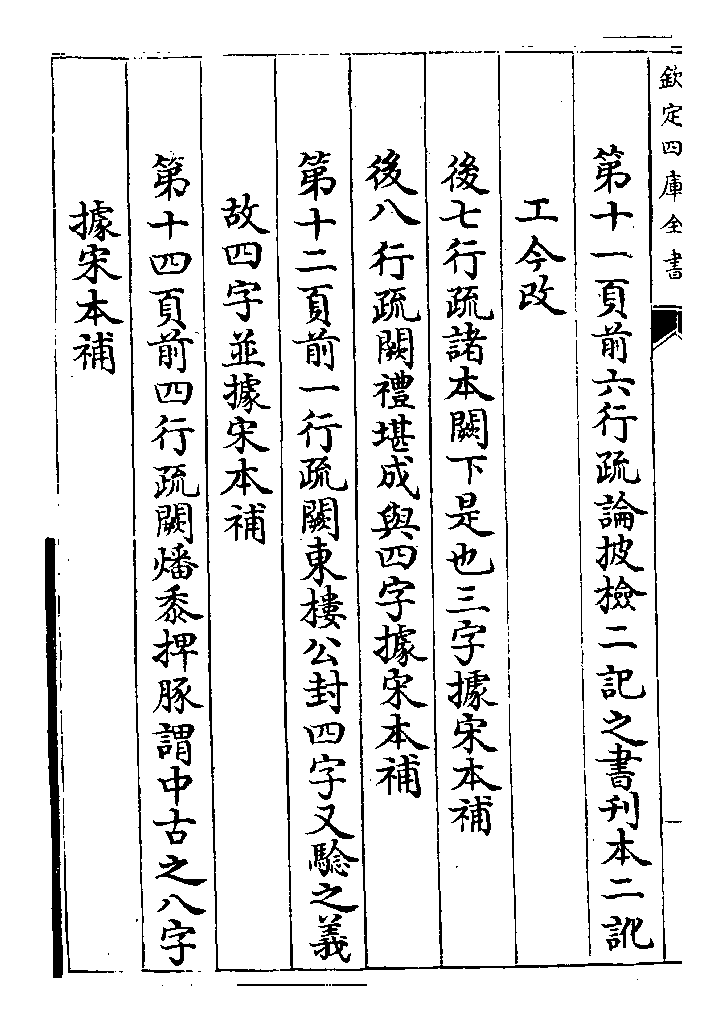 欽定四庫全書
第十一頁前六行疏論披檢二記之書刊本二訛
工今改
後七行疏諸本闕下是也三字據宋本補
後八行疏闕禮堪成與四字據宋本補
第十二頁前一行疏闕東樓公封四字又驗之義
故四字並據宋本補
第十四頁前四行疏闕燔黍捭豚謂中古之八字
據宋本補